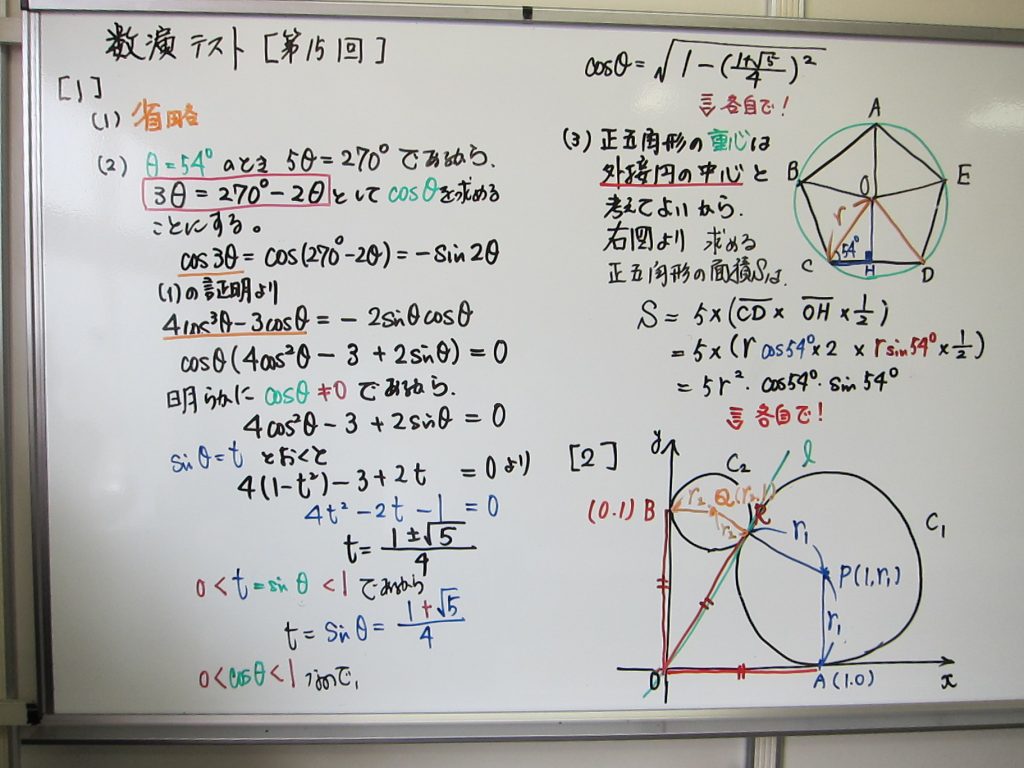 数演テスト[第15回]
[1]
(1) 省略
(2) θ=54°のとき 5θ=270°であるから.
3θ=270°-2θとしてcosθを求める
ことにする。
cos3θ=cos(270°-2θ)=-sin2θ
(1)の証明より
4cos³θ-3cosθ=-2sinθcosθ
cosθ(4cos²θ-3+2sinθ)=0
明らかにcosθ≠0であるから.
4cos²θ-3+2sinθ=0
sinθ=tとおくと
4(1-t²)-3+2t=0より
4t²-2t-1=0
t=(1±√5)/4
0<t=sinθ<1であるから
t=sinθ=(1+√5)/4
0<cosθ<1なので,
cosθ=√(1-((1+√5)/4)²)
各自で!
(3) 正五角形の重心は
外接円の中心と
考えてよいから.
右図より 求める
正五角形の面積Sは.
A
B
E
O
r
54°
C
H
D
S=5×(CD×OH×1/2)
=5×(r cos54°×2×r sin54°×1/2)
=5r²・cos54°・sin54°
各自で!
[2]
y
C₂
l
(0.1) B
r₂
Q(r₂,1)
R
r₂
r₁
C₁
P(1,r₁)
r₁
O
A(1.0)
x